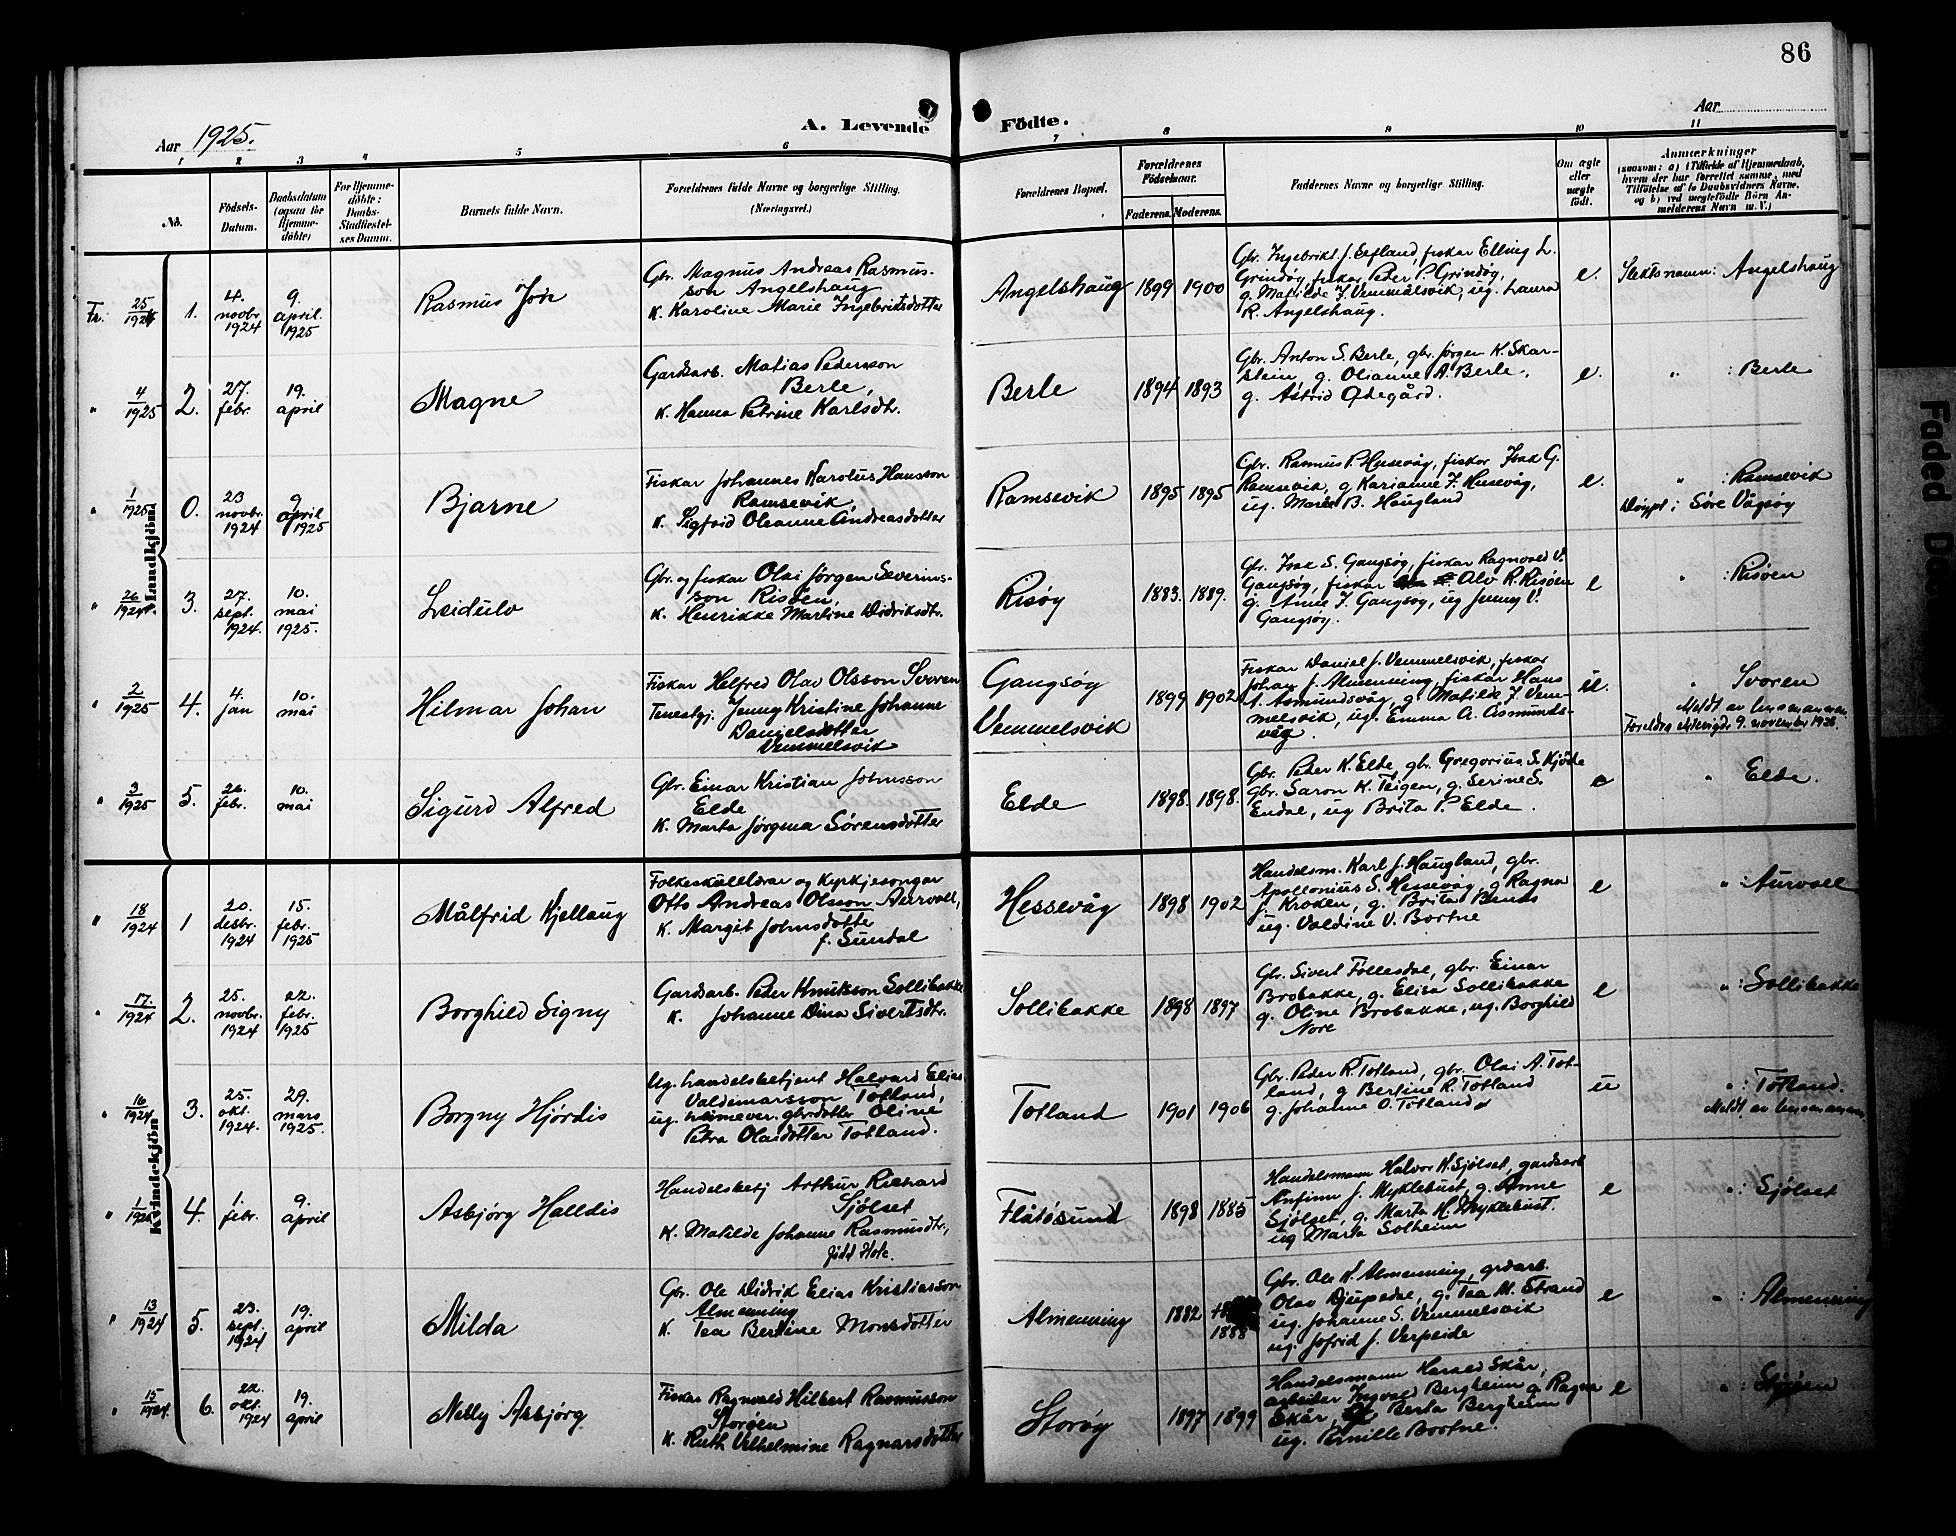 86
Aar 1925.
A. Levende
Födte.
Aar
1 2 3 4 5 6 7 8 9 10 11
No.
Födsels-
Datum.
Daabsdatum
(ogsaa for
Hjemme-
döbte)
For Hjemme-
döbte:
Daabs-
Stadfæstel-
ses Datum.
Barnets fulde Navn.
Forældrenes fulde Navne og borgerlige Stilling.
(Næringsvei.)
Forældrenes Bopæl.
Forældrenes
Födselsaar.
Faderens. Moderens.
Faddernes Navne og borgerlige Stilling.
Om ægte
eller
uægte
födt.
Anmærkninger
(saasom: a) i Tilfælde af Hjemmedaab,
hvem der har forrettet samme, med
Tilföielse af to Daabsvidners Navne,
og b) ved uægtefödte Börn An-
melderens Navn m. V.)
Mandkjön
Fr. 25/1924 1. 4. novbr. 1924 9. april. 1925
Rasmus Jon
Gbr. Magnus Andreas Rasmus-
son Angelshaug
K. Karoline Marie Ingebriktsdotter
Angelshaug 1899 1900
Gbr. Ingebrikt J. Eefland, fiskar Elling L.
Grindøy, fiskar Peder P. Grindøy,
g. Matilde J. Vemmelsvik, ug. Laura
R. Angelshaug.
e. Slektsnamn: Angelshaug
" 4/1925 2. 27. febr. 19. april
Magne
Gardsarb. Matias Pedersson
Berle,
K. Hanna Petrine Karlsdtr.
Berle 1894 1893
Gbr. Anton S. Berle, gbr. Jørgen K. Skar-
stein, g. Olianne A. Berle,
g. Astrid Ødegård.
e. " : Berle
" 1/1925 0. 23 novbr. 1924 9 april 1925
Bjarne
Fiskar Johannes Karolus Hansson
Ramsevik,
K. Sigfrid Oleanne Andreasdotter
Ramsevik 1895 1895
Gbr. Rasmus P. Husevåg, fiskar Isak G.
Ramsevik, g Karianne F. Husevåg,
ug. Marie B. Haugland
e. " : Ramsevik
Døypt i Søre Vågsøy
" 26/1924 3. 27. sept. 1924. 10. mai 1925.
Leidulv
Gbr. og fiskar Olai Jørgen Severins-
son Risøen,
K. Henrikke Martine Didriksdtr.
Risøy 1883. 1889.
Gbr. Isak S. Gangsøy, fiskar Ragnvald V.
Gangsøy, fiskar Alv R. Risøen
g. Anne J. Gangsøy, ug Jenny V.
Gangsøy.
e " : Risøen
" 2/1925 4. 4. jan 10. mai
Hilmar Johan
Fiskar Helfred Olav Olsson Svoren
Tenestgj. Jenny Kristine Johanne
Danielsdotter
Vemmelsvik
Gangsøy
Vemmelsvik
1899 1902
Fiskar Daniel J. Vemmelsvik, fiskar
Johan J. Almenning, fiskar Hans
A. Asmundsvåg, g. Matilde J. Vem-
melsvik, ug. Emma A. Asmunds-
våg.
u. " Svoren
Meldt av lensmannen
Foreldra ektevigde 9. november 1926.
" 3/1925 5. 26. febr. 10. mai
Sigurd Alfred
Gbr. Einar Kristian Johnsson
Elde
K. Marta Jørgina Sørensdotter
Elde 1898. 1898.
Gbr. Peder K. Elde, gbr. Gregorius S. Kjøde
Gbr. Saron K. Teigen, g. Serine S.
Endal, ug Brita P. Elde.
e " Elde.
Kvindekjön
" 18/1924 1 20. desbr. 1924 15. febr. 1925
Målfrid Kjellaug
Folkeskulelærar og kyrkjesongar
Otto Andreas Olsson Aurvoll,
K. Margit Johnsdotter
f. Sundal
Hessevåg 1898 1902
Handelsm. Karl J. Haugland, gbr.
Apollonius S. Hessevåg, g Ragna
J. Kroken, g. Brita Bends
ug. Valdine V. Bortne
e ": Aurvoll
" 17/1924 2. 25. novbr. 1924 22. febr. 1925
Borghild Signy
Gardsarb. Peder Knutsson Sollibakke
K. Johanne Dina Sivertsdtr.
Sollibakke 1898 1897
Gbr. Sivert Føllesdal, gbr. Einar
Brobakke, g. Elisa Sollibakke
g. Oline Brobakke, ug. Borghild
Nore
e ": Sollibakke
" 16/1924 3. 25. okt. 1924. 29. mars 1925.
Borgny Hjørdis
Ug. handelsbetjent Halvard Elias
Valdemarsson Totland,
ug. heimever. gbrdotter Oline
Petra Olaidotter Totland.
Totland 1901 1906
Gbr. Peder R. Totland, gbr. Olai A. Tot-
land, g Bertine R. Totland
g. Johanne O. Totland
u ": Totland.
Meldt av lensmannen
" 1/1925 4. 1. febr. 9. april
Asbjørg Halldis
Handelsbetj Arthur Richard
Sjølset
K. Matilde Johanne Rasmusdtr,
fødd Hole.
Flåtøsund 1898 1885
Handelsmann Halvor K. Sjølset, gardsarb
Anfinn J. Myklebust, g. Anne
Sjølset, g. Marta H. Myklebust.
ug Marta Solheim
e ": Sjølset
" 13/1924 5. 23. sept. 1924 19. april
Milda
Gbr. Ole Didrik Elias Kristiansson
Almenning
K. Tea Bertine Monsdotter
Almenning 1882 1888
Gbr. Ole K. Almenning, grdarb.
Olav Djupedal, g. Tea M. Strand
ug. Johanne S. Vemmelsvik
ug. Jofrid J. Verpeide
e ": Almenning
" 15/1924. 6. 22. okt. 1924 19. april
Nelly Asbjørg
Fiskar Ragnvald Hilbert Rasmusson
Storøen
K. Ruth Vilhelmine Ragnarsdotter
Storøy 1897 1899
Handelsmann Harald Skår,
arbeider Ingvald Bergheim g Ragna
Skår, g. Berta Bergheim
ug. Pernille Bortne.
e ":
Faded Doc